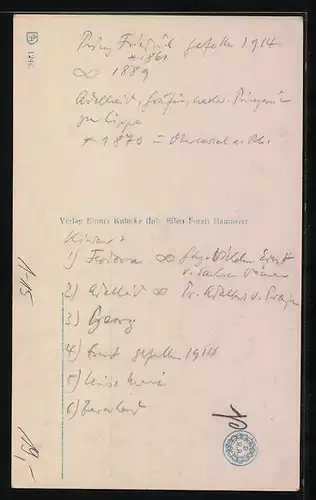 1246.
Prinz Friedrich gefallen 1914
*1861
∞ 1889
Adelheid, Gräfin, Prinzessin
zur Lippe
* 1870 in Obercassel a. Rh.
Verlag Emma (Inh. Ellen Forst) Hannover
Kinder:
1) Feodora ∞ Wilhelm Ernst
v. Sachsen Weimar
2) Adelheid ∞ Pr. Adalbert v. Preußen
3) Georg
4) Ernst gefallen 1914
5) Luise Marie
6) Bernhard
1-15
19,-